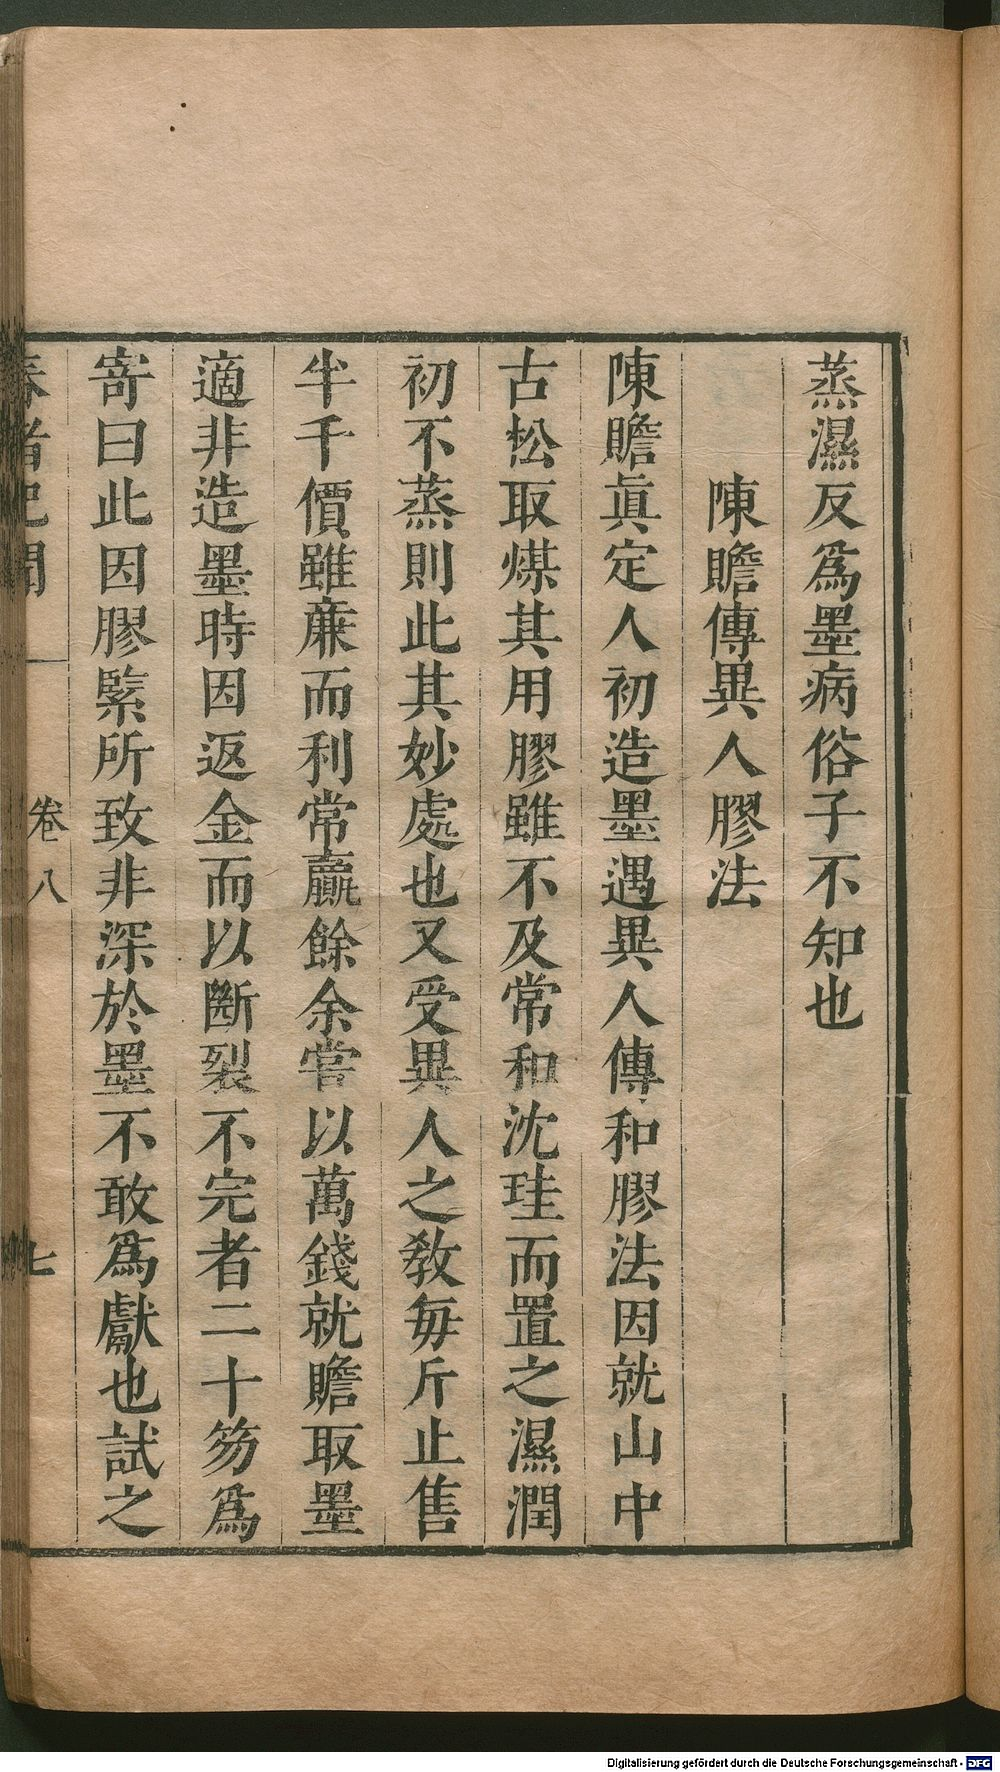 蒸濕反爲墨病俗子不知也
陳贍傳異人膠法
陳贍眞定人初造墨遇異人傳和膠法因就山中
古松取煤其用膠雖不及常和沈珪而置之濕潤
初不蒸則此其妙處也又受異人之敎毎斤止售
半千價雖亷而利常贏餘余嘗以萬錢就贍取墨
適非造墨時因返金而以斷裂不完者二十笏爲
寄曰此因膠緊所致非深於墨不敢爲獻也試之
春渚紀聞
卷八
七
Digitalisierung gefördert durch die Deutsche Forschungsgemeinschaft - DFG